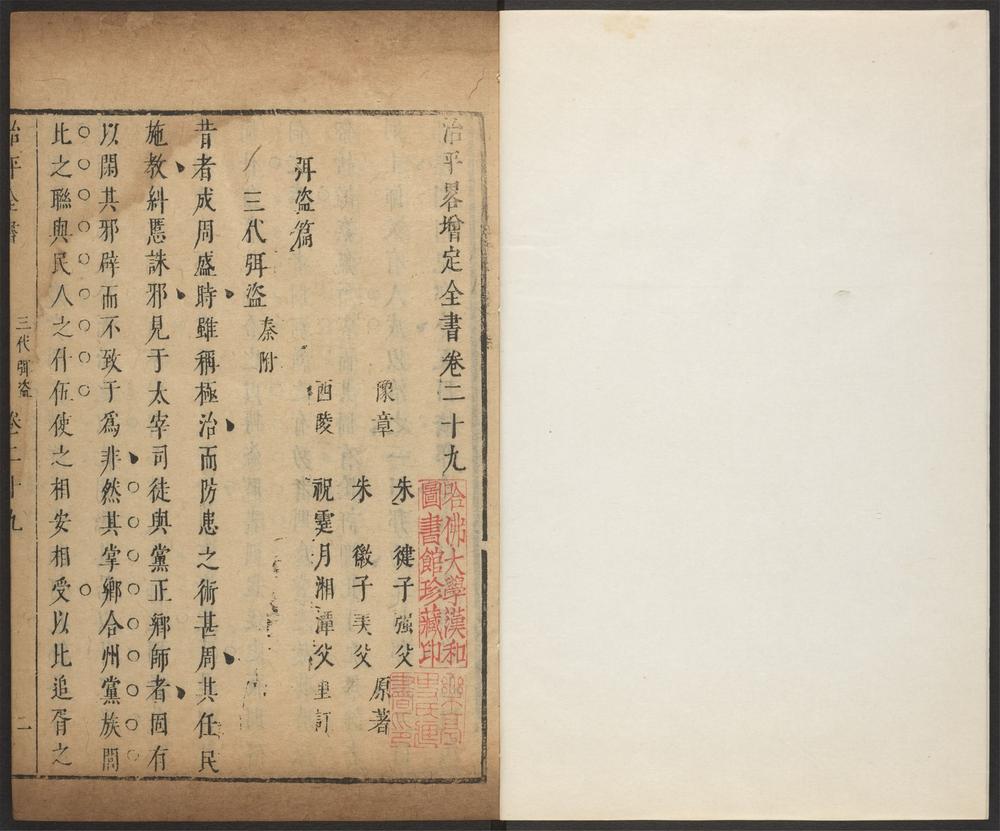 治平畧增定全書卷二十九
豫章 朱健子強父
朱徽子美父 原著
西陵 祝霆月湘潭父重訂
弭盜篇
三代弭盜 秦附
昔者成周盛時雖稱極治而防患之術甚周其任民
施教糾慝誅邪見于太宰司徒與黨正鄉師者固有
以閑其邪辟而不致于為非然其掌鄉合州黨族閭
比之聯與民人之什伍使之相安相受以比追胥之
治平全書 三代弭盜 卷二十九 一
哈佛大學漢和
圖書館珍藏印